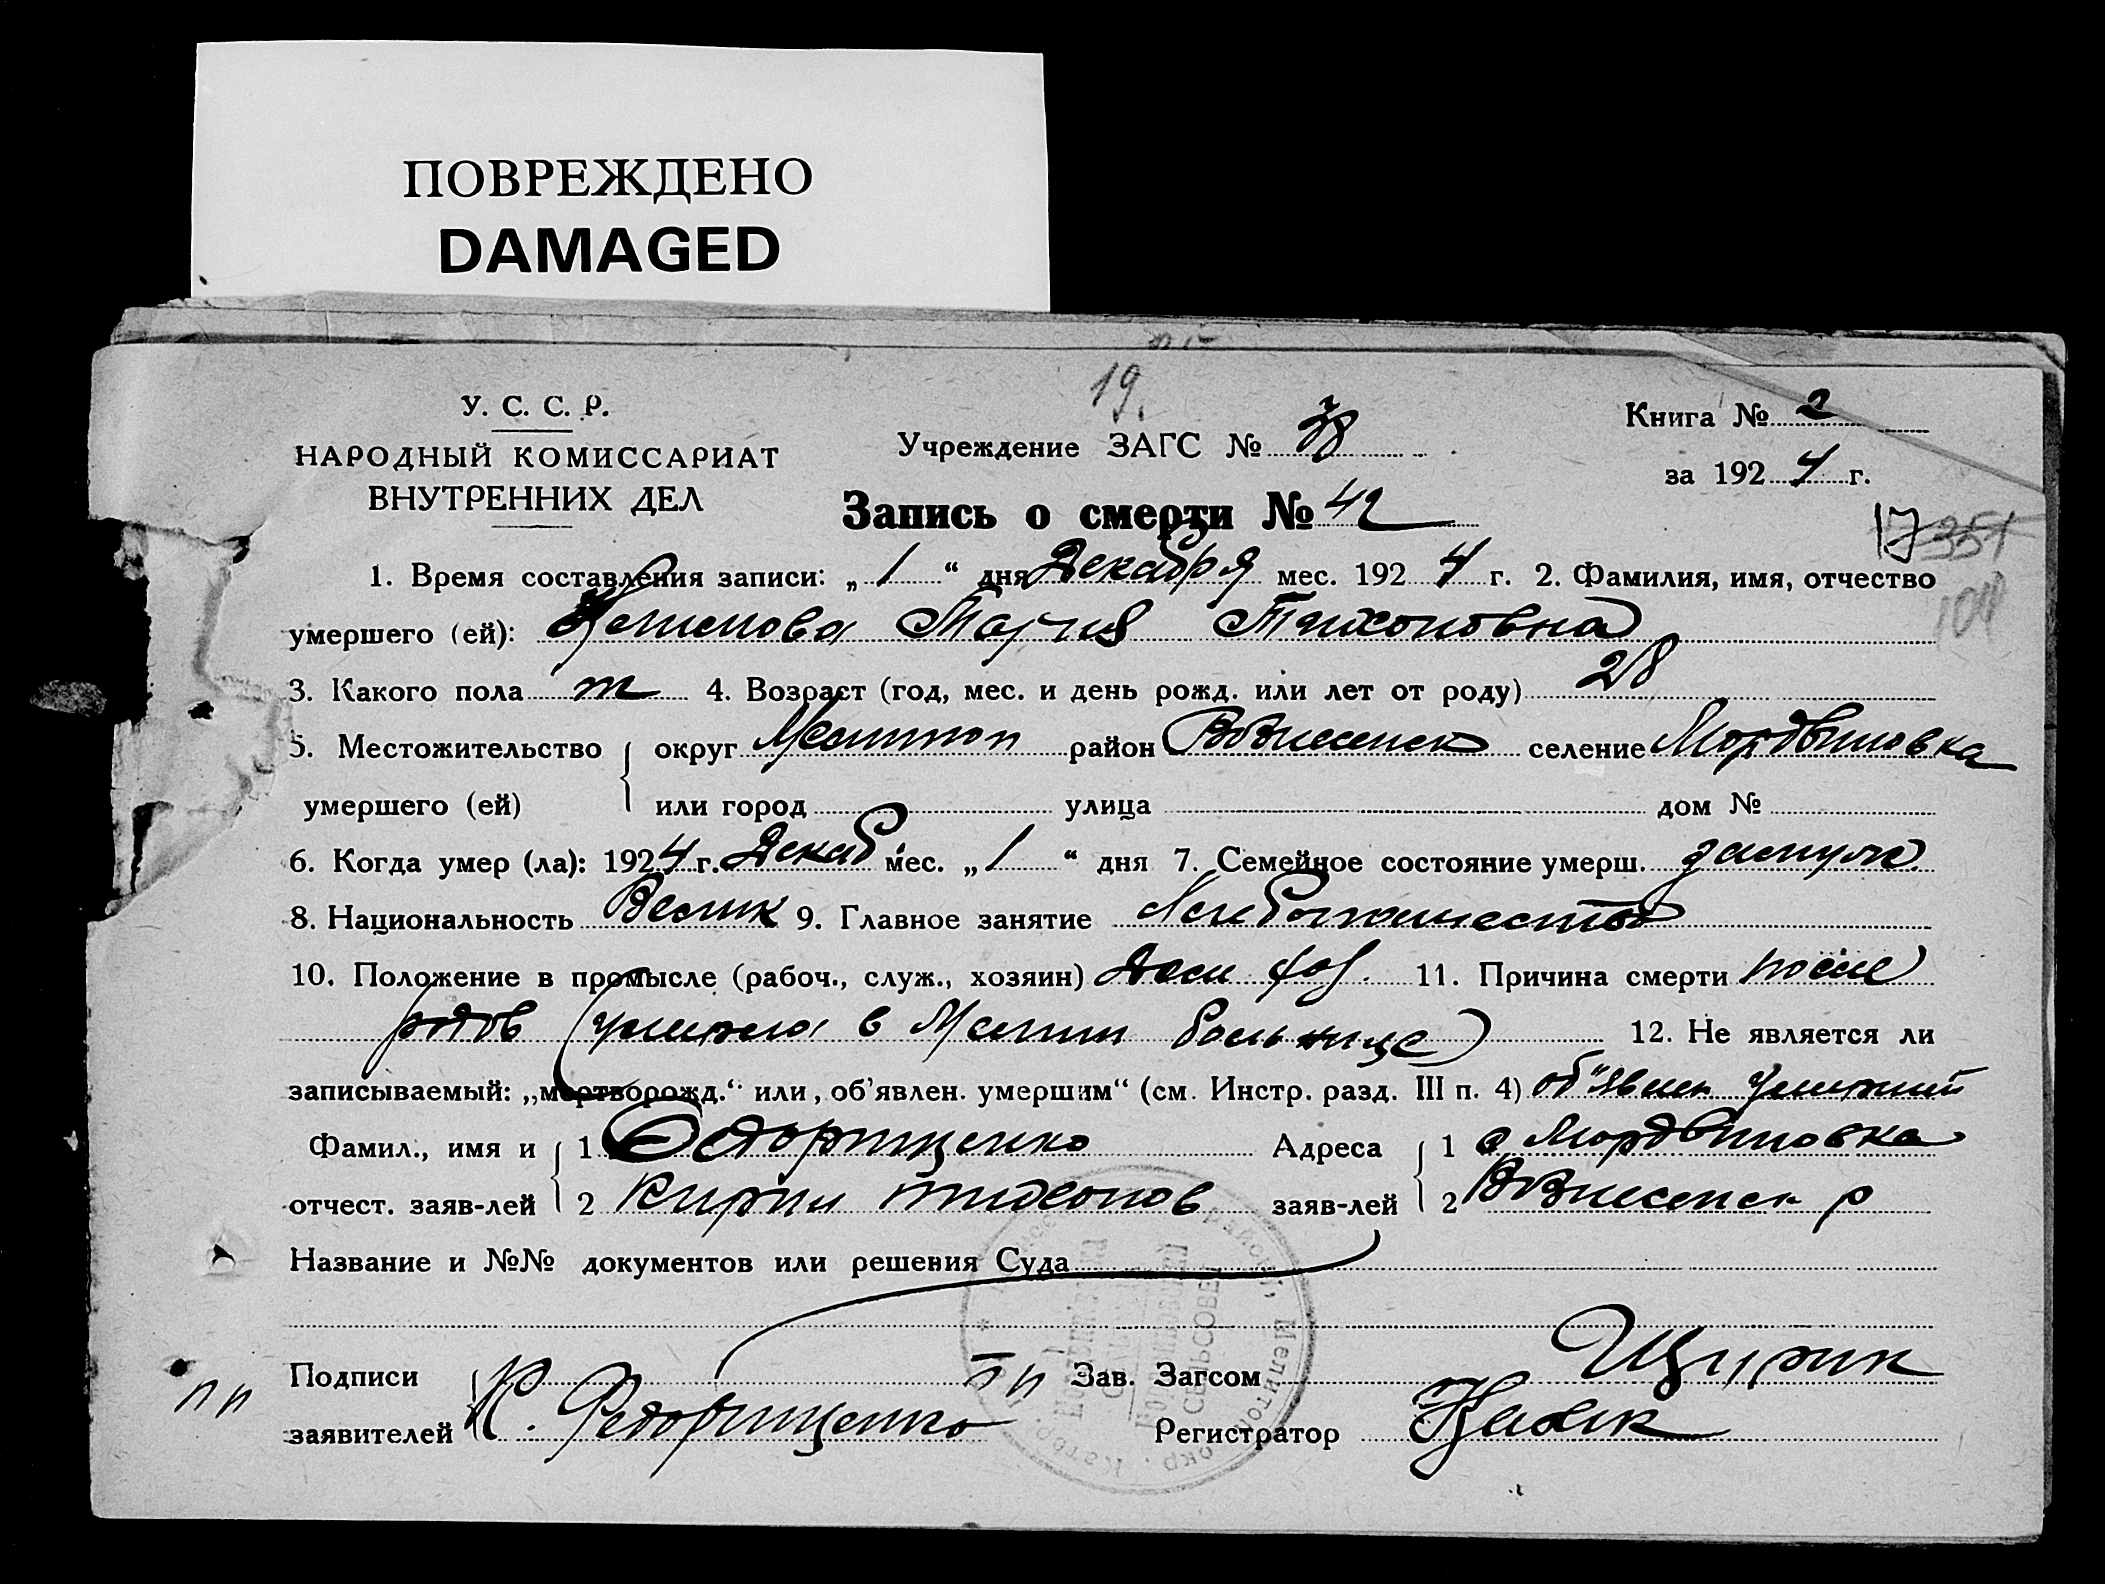 ПОВРЕЖДЕНО
DAMAGED
19.
У. С. С. Р.
НАРОДНЫЙ КОМИССАРИАТ
ВНУТРЕННИХ ДЕЛ
Учреждение ЗАГС №
Книга № 2
за 1924 г.
Запись о смерти № 42
17 351
104
1. Время составления записи: „ 1 “ дня Декабря мес. 1924 г. 2. Фамилия, имя, отчество
умершего (ей): Мария Тихоновна
3. Какого пола 4. Возраст (год, мес. и день рожд. или лет от роду) 28
5. Местожительство округ Мелитоп район Вознесенск селение Мордвиновка
умершего (ей) или город улица дом №
6. Когда умер (ла): 1924 г. Декаб мес. „ 1 “ дня 7. Семейное состояние умерш. замуж.
8. Национальность Велик 9. Главное занятие Хлебопашество
10. Положение в промысле (рабоч., служ., хозяин) Дом хоз. 11. Причина смерти после
родов (умерла в Мелит больнице) 12. Не является ли
записываемый: „мертворожд.“ или „об’явлен. умершим“ (см. Инстр. разд. III п. 4) об'явлен умерший
Фамил., имя и 1 Федорищенко Адреса 1 с Мордвиновка
отчест. заяв-лей 2 Кирил тихонов заяв-лей 2 Вознесенск р
Название и №№ документов или решения Суда
Подписи Зав. Загсом
пп
заявителей К. Федорищенко Регистратор